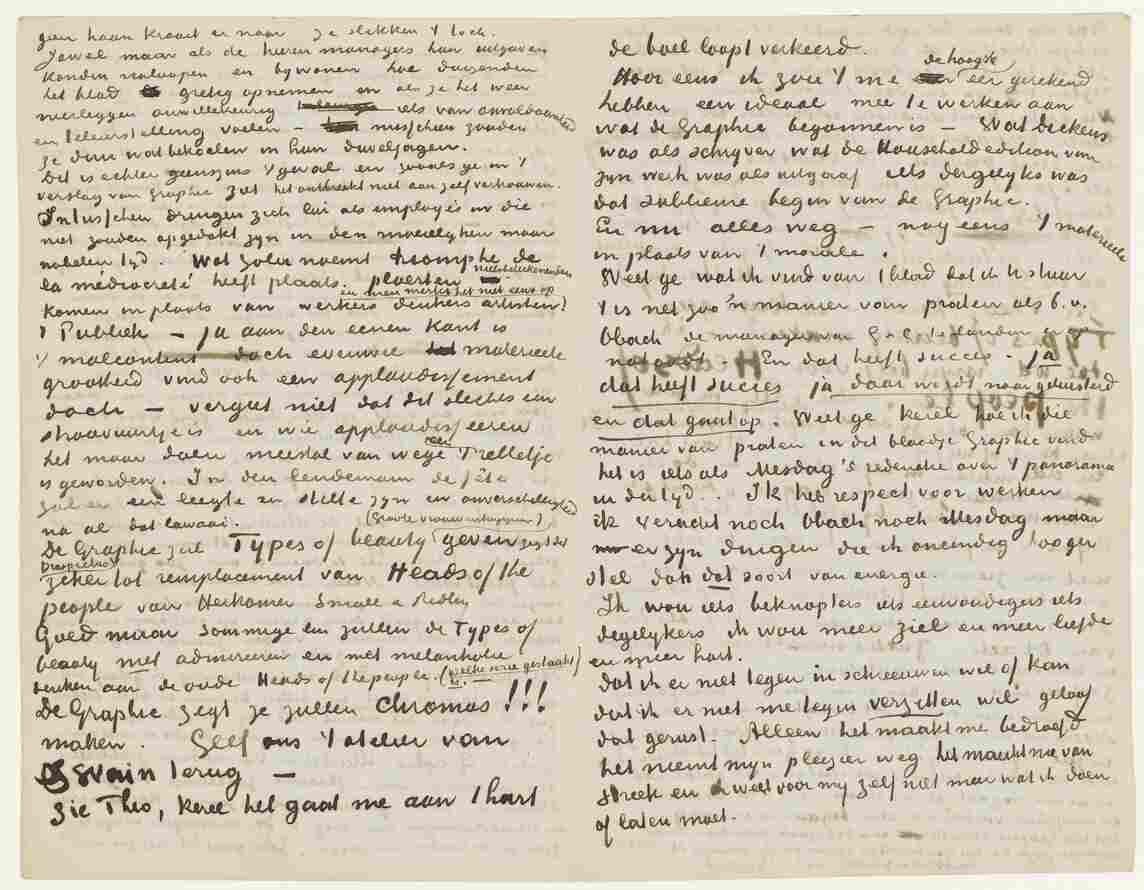 geen haan kraait er naar je slikken 't toch.
Jawel maar als de heeren managers hun uitgaven
konden naloopen en bywonen hoe duizenden
het blad gretig opnemen en als je het weer
neerleggen onwillekeurig iets van onvoldaanheid
en teleurstelling voelen – misschien zouden
ze dan wat bekoelen in hun duveljagen.
Dit is echter geenszins 't geval en zooals ge in 't
verslag van Graphic ziet het ontbreekt niet aan zelfvertrouwen.
Intusschen dringen zich lui als employés in die
niet zouden opgedokt zyn in den moeielyken maar
nobelen tyd. Wat Zola noemt triomphe de
la médiocrité heeft plaats. ploerten nietsbeteekenenden
komen in plaats van werkers denkers artisten!
en men merkt het niet eens op
't Publiek – ja aan den eenen kant is
't malcontent doch evenwel materieele
grootheid vind ook een applaudissement
doch – vergeet niet dat dit slechts een
stroovuurtje is en wie applaudisseeren
het maar doen meestal van wege 't relletje
een
is geworden. In den lendemain de fête
zal er een leegte en stilte zyn en onverschilligheid
na al dat lawaai.
(Groote vrouwentypen)
De Graphic zal Types of beauty geven zegt het
Prospectus
zeker tot remplacement van Heads of the
people van Herkomer Small & Ridley
Goed maar sommige lui zullen de Types of
beauty niet admireeren en met melancholie
denken aan de oude Heads of the people. (welke serie gestaakt
is.)
De Graphic zegt ze zullen Chromos!!!
maken. Geef ons 't atelier van
Swain terug –
Zie Theo, kerel het gaat me aan 't hart
de boel loopt verkeerd.
Hoor eens ik zou 't me de hoogste eer gerekend
hebben een ideaal mee te werken aan
wat de Graphic begonnen is – Wat Dickens
was als schryver wat de Household edition van
zyn werk was als uitgaaf iets dergelyks was
dat sublieme begin van de Graphic.
En nu alles weg – nog eens 't materieele
in plaats van 't morale.
Weet ge wat ik vind van 't blad dat ik U stuur
't is net zoo'n manier van praten als b.v.
Obach de manager van G & Cie te Londen er op
nahoudt. En dat heeft succes – ja
dat heeft succes ja daar wordt naar geluisterd
en dat gaat op. Weet ge kerel hoe ik die
manier van praten in dit blaadje Graphic vind
het is iets als Mesdag's redenatie over 't panorama
in der tyd.. Ik heb respect voor werken
ik veracht noch Obach noch Mesdag maar
er zyn dingen die ik oneindig hooger
stel dan dat soort van energie.
Ik wou iets beknopters iets eenvoudigers iets
degelykers ik wou meer ziel en meer liefde
en meer hart.
dat ik er niet tegen in schreeuwen wil of kan
dat ik er niet me tegen verzetten wil geloof
dat gerust. Alleen het maakt me bedroefd
het neemt myn pleizier weg het maakt me van
streek en ik weet voor my zelf niet meer wat ik doen
of laten moet.